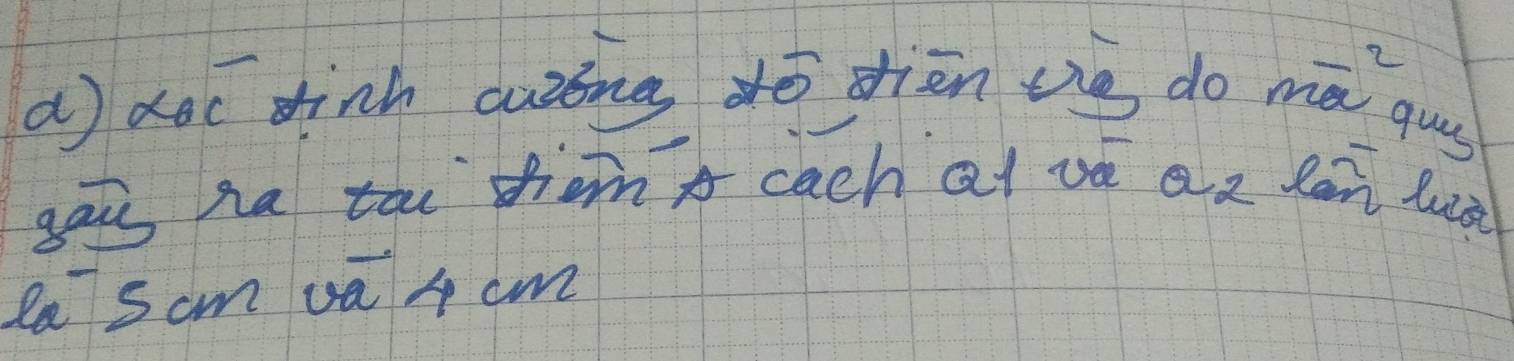 a) xác định cường độ điện trg do mà² quy
gây ra tại điểm A cách Q1 và Q2 lần lượt
là 5 cm và 4 cm